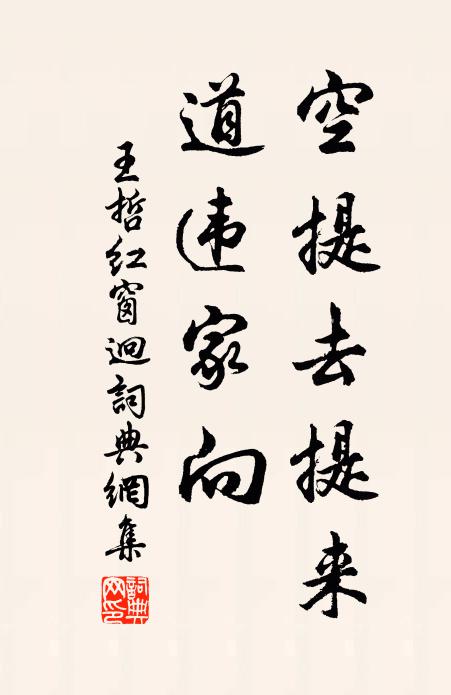 空提去提来
道违家向
王哲红窗迥詞典網集
詞典网印